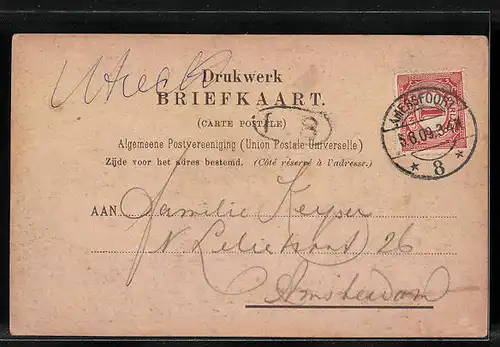 Utrecht
Drukwerk
BRIEFKAART.
(CARTE POSTALE)
Algemeene Postvereeniging (Union Postale Universelle)
Zijde voor het adres bestemd. (Côté réservé à l'adresse.)
AMERSFOORT
8
AAN Familie Keyser
N Leliestraat 26
Amsterdam